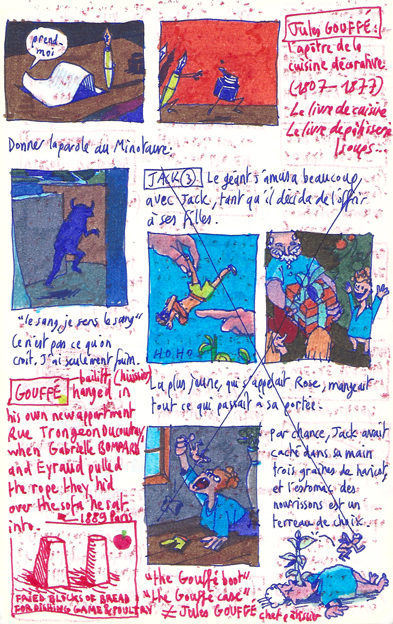 prend-
moi
Jules GOUFFÉ:
L'apôtre de la
cuisine décorative.
(1807-1877)
Le livre de cuisine
Le livre de pâtisserie
soups...
Donner la parole au Minotaure.
JACK (3) Le géant s'amusa beaucoup
avec Jack, tant qu'il décida de l'offrir
à ses filles.
"le sang, je sens le sang"
Ce n'est pas ce qu'on
croit. J'ai seulement faim.
HO HO
La plus jeune, qui s'appelait Rose, mangeait
tout ce qui passait à sa portée.
GOUFFÉ bailiff (huissier)
hanged in
his own new appartment
Rue Tronson Ducoudray
when Gabrielle BOMPARD
and Eyraud pulled
the rope they hid
over the sofa he sat
into.
1889 Paris
Par chance, Jack avait
caché dans sa main
trois graines de haricot,
et l'estomac des
nourrissons est un
terreau de choix...
FRIED BLOCKS OF BREAD
FOR DISHING GAME & POULTRY
"the Gouffé boot"
"the Gouffé case"
≠ Jules GOUFFÉ chef pâtissier